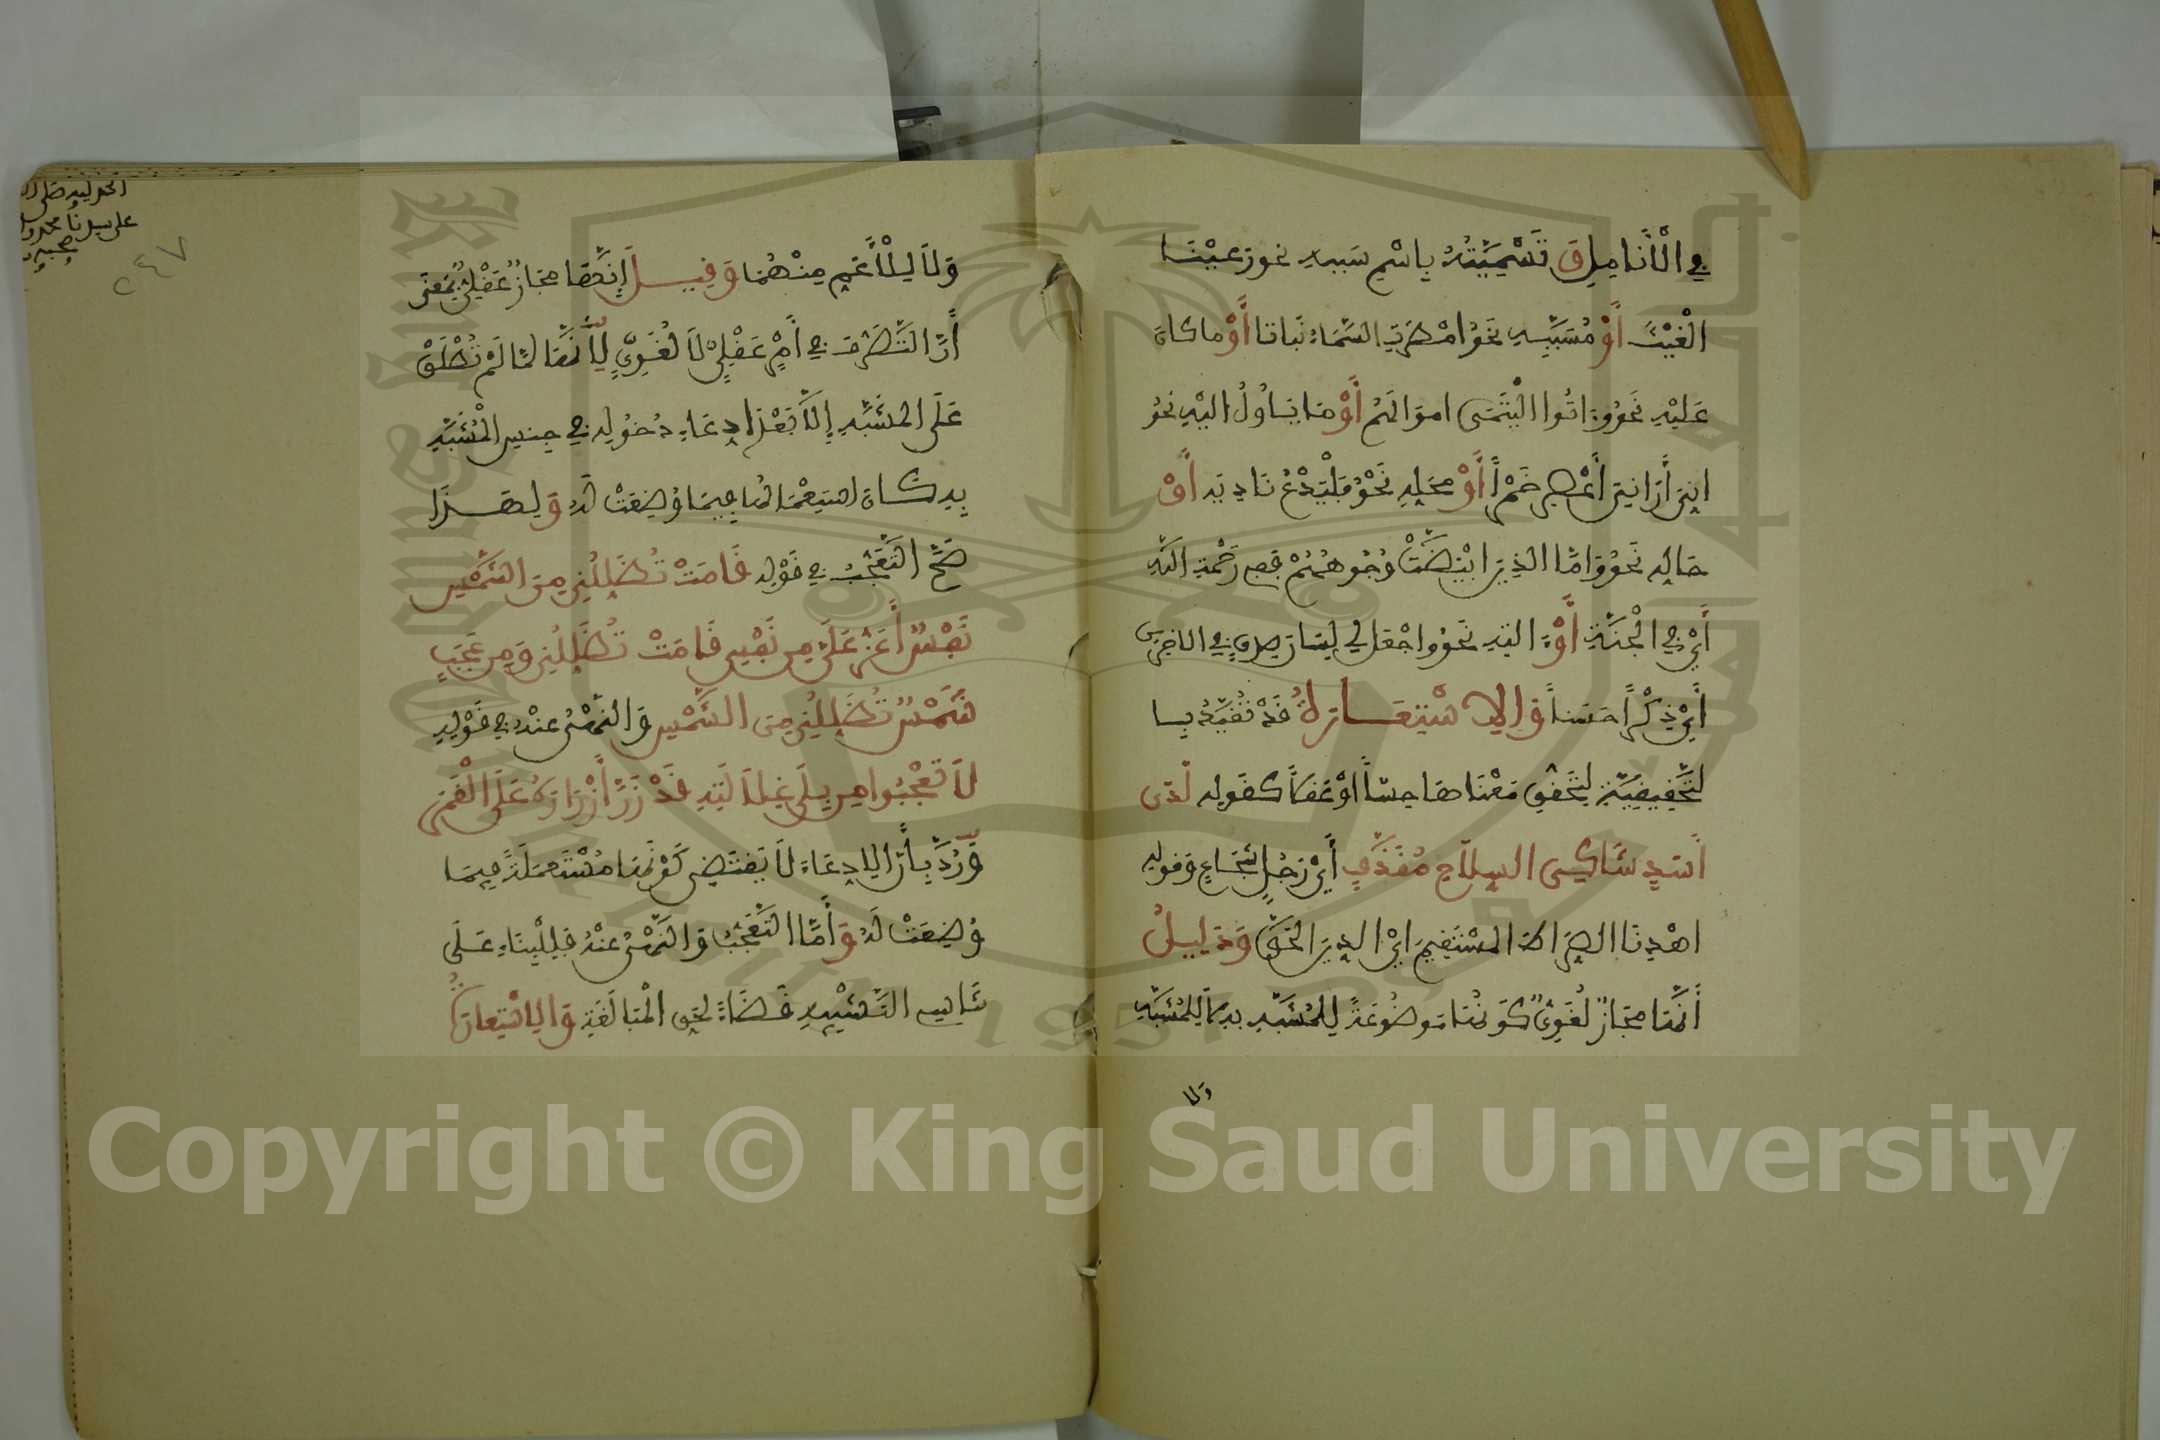 في الْأَنَامِلِ وَتَسْمِيَتُهُ بِاسْمِ سَبَبِهِ نحو رَعَيْنَا
الْغَيْثَ أَوْ مُسَبَّبِهِ نَحْوُ امْطَرَتِ السَّمَاءُ نَبَاتا أَوْ ما كانَ
عَلَيْهِ نَحْوُ وءَاتُوا الْيَتَمَى امْوَالَهُمْ أَوْ مَا يَـُٔولُ الَيْهِ نَحْوُ
اِنِّيَ أَرَانِيَ أَعْصِرُ خَمْراً أَوْ مَحَلِّهِ نَحْوُ فَلْيَدْعُ نَادِيَه أَوْ
حَالِّهِ نَحْوُ وَامَّا الذِينَ ابْيَضَّتْ وُجُوهُهُمْ فَفِي رَحْمَةِ اللَّهِ
أَيْ في الْجَنَّةِ أَوْ ءَالَتِهِ نَحْوُ واجْعَل لِّي لِسَانَ صِدْقٍ في الاخِرِينَ
أَيْ ذِكْراً حَسَناً وَالِاسْتِعَارَةُ قَدْ تُقَيَّدُ بِا
لتَّحْقِيقِيَّةِ لِتَحَقُّقِ مَعْنَاهَا حِسّاً أَوْ عَقْلاً كَقَوْلِهِ لَدَى
أَسَدٍ شَاكِي السِّلَاحِ مُقَذَّفٍ أَيْ رَجُلٍ شُجَاعٍ وَقَوْلِهِ
اهْدِنَا الصِّرَاطَ الْمُسْتَقِيمَ ايْ الدِّينَ الْحَقَّ وَدَلِيلُ
أَنَّهَا مَجَازٌ لُغَوِيٌّ كَوْنُهَا مَوْضُوعَةً لِلْمُشَبَّهِ بِهِ لَا لِلْمُشَبَّهِ
وَلا
وَلَا لِلْأَعَمِّ مِنْهُمَا وَقِيلَ إِنَّهَا مَجَازٌ عَقْلِيٌّ بِمَعْنَى
أَنَّ التَّصَرُّفَ في أَمْرٍ عَقْلِيٍّ لَا لُغَوِيٍّ لِأَنَّهَا لَمَّا لَمْ تُطْلَقْ
عَلَى الْمُشَبَّهِ إِلَّا بَعْدَ ادِّعَاءِ دُخُولِهِ في جِنْسِ الْمُشَبَّهِ
بِهِ كَانَ اسْتِعْمَالُهَا فِيمَا وُضِعَتْ لَهُ وَلِهَذَا
صَحَّ التَّعَجُّبُ في قَوْلِهِ قَامَتْ تُظَلِّلُنِي مِنَ الشَّمْسِ
نَفْسٌ أَعَزُّ عَلَيَّ مِن نَفْسِي قَامَتْ تُظَلِّلُنِي وَمِن عَجَبٍ
شَمْسٌ تُظَلِّلُنِي مِنَ الشَّمْسِ وَالنَّهْيُ عَنْهُ في قَوْلِهِ
لَا تَعْجَبُوا مِن بِلَى غِلَالَتِهِ قَدْ زَرَّ أَزْرَارَهُ عَلَى الْقَمَرِ
وَرُدَّ بِأَنَّ الِادِّعَاءَ لَا يَقْتَضِي كَوْنَهَا مُسْتَعْمَلَةً فِيمَا
وُضِعَتْ لَهُ وَأَمَّا التَّعَجُّبُ وَالنَّهْيُ عَنْهُ فَلِلْبِنَاءِ عَلَى
تَنَاسِي التَّشْبِيهِ قَضَاءً لِحَقِّ الْمُبَالَغَةِ وَالِاسْتِعَارَةُ
الحمد لله صلى ال
على سيدنا محمد و
صحبه
٢٤٧
Copyright © King Saud University
1957